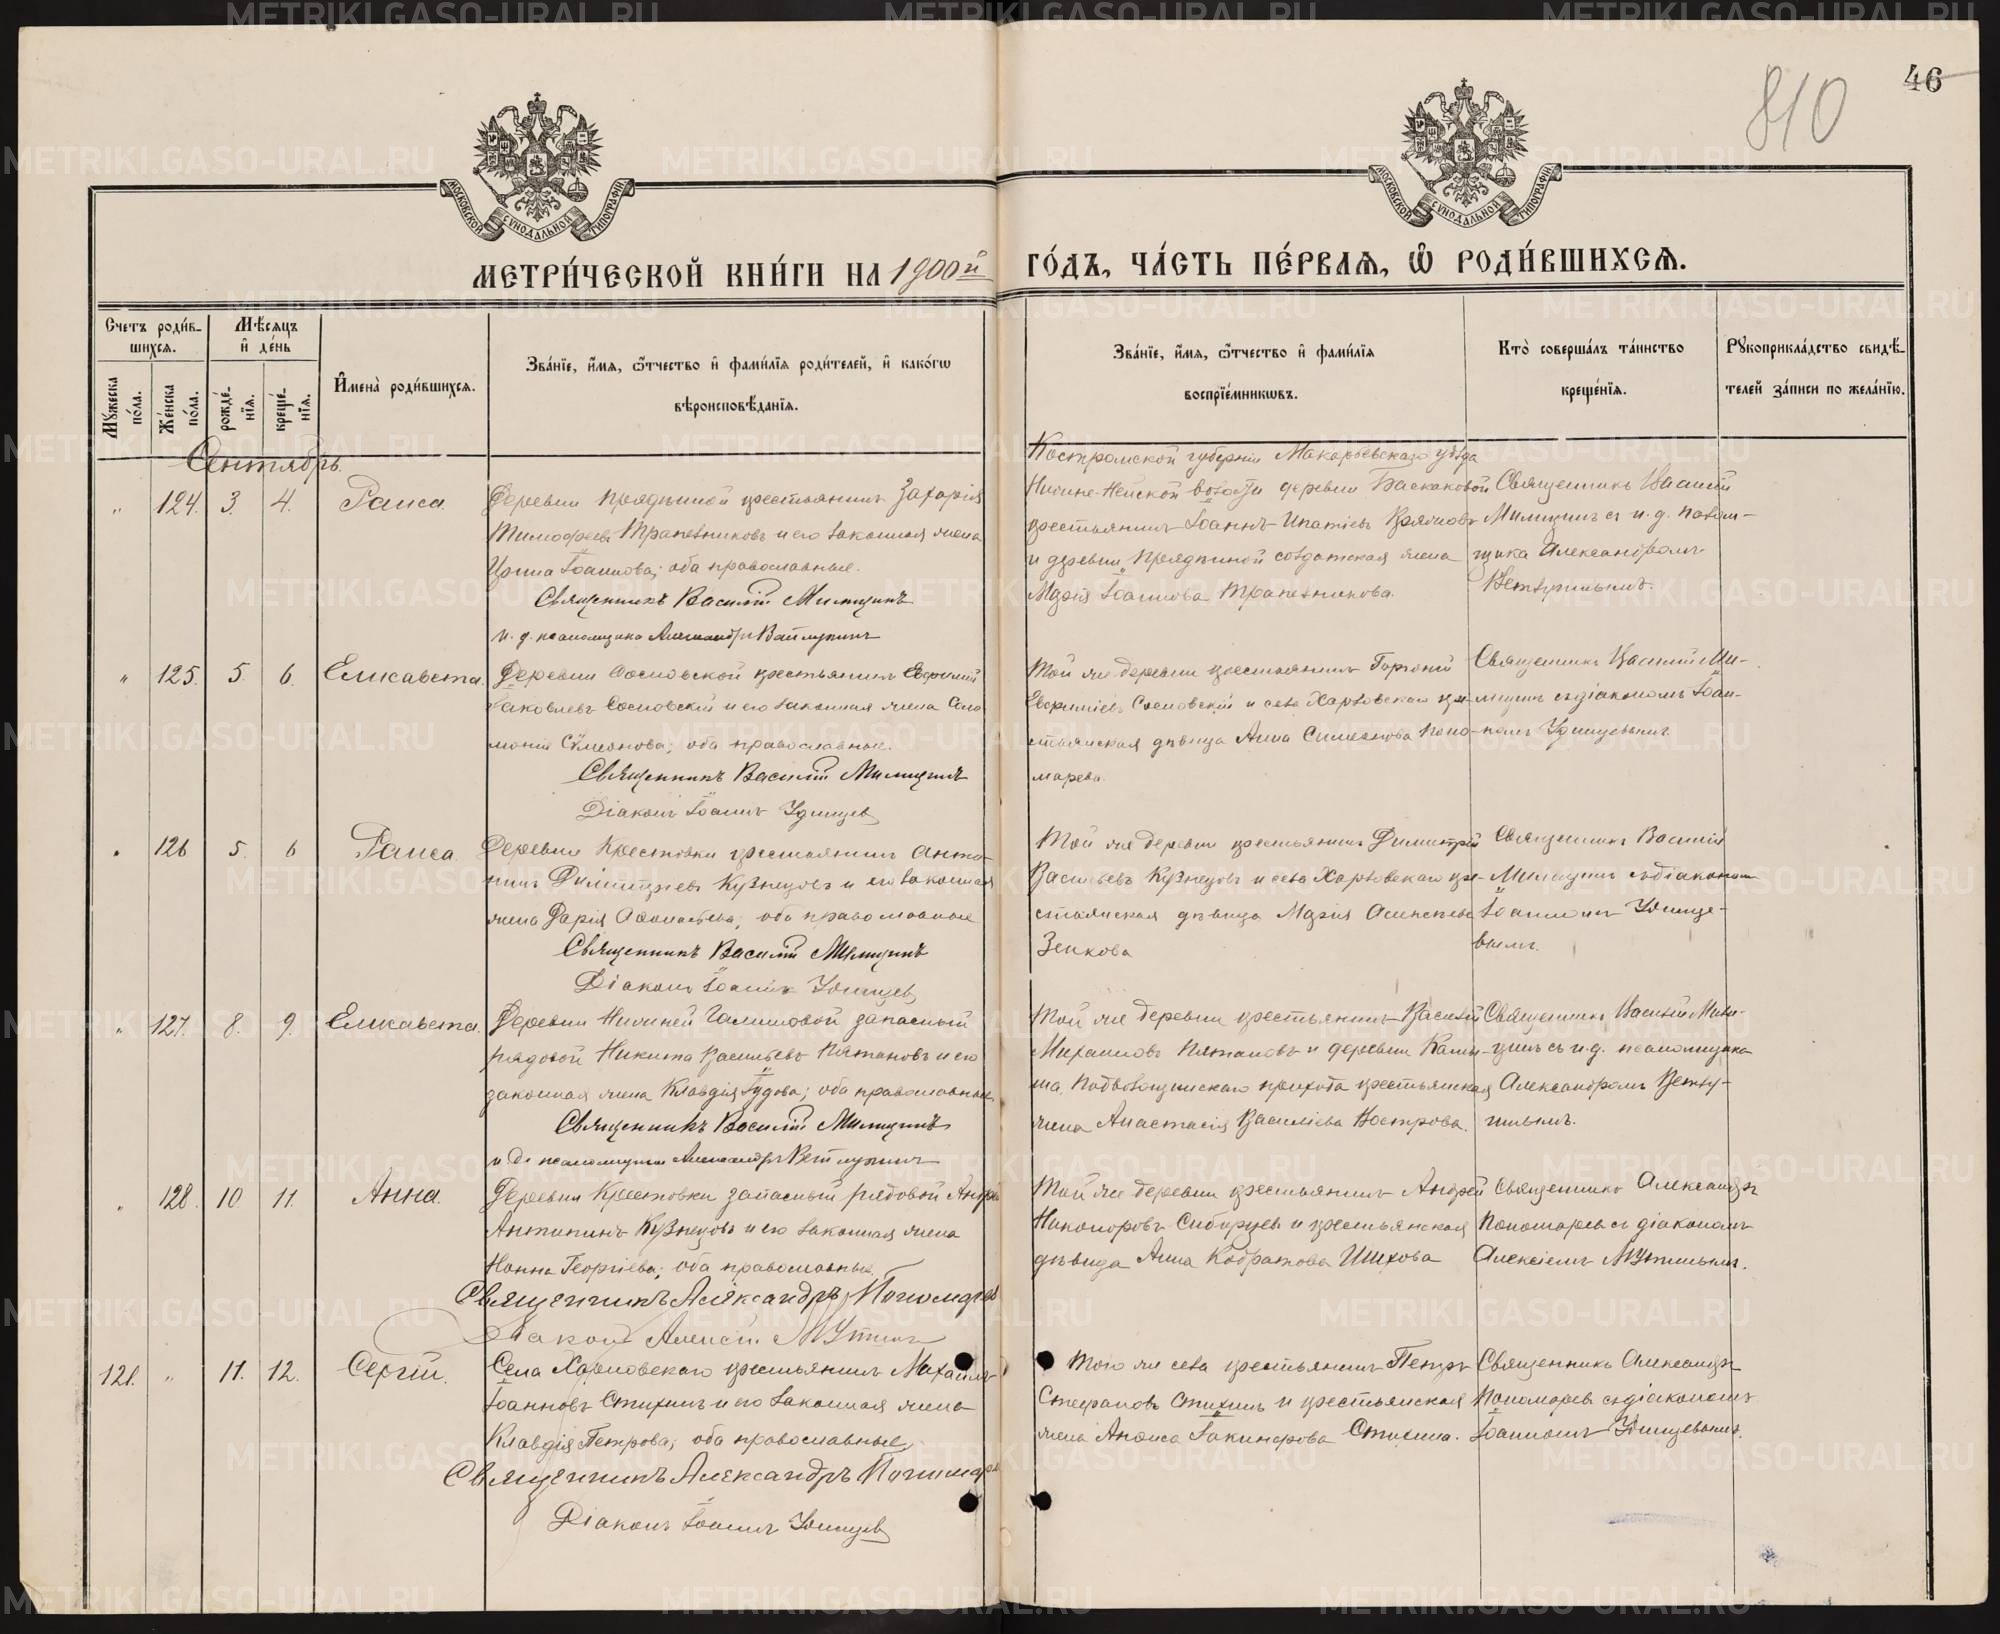 46
810
МОСКОВСКОЙ СѴНОДАЛЬНОЙ ТИПОГРАФІИ
МОСКОВСКОЙ СѴНОДАЛЬНОЙ ТИПОГРАФІИ
МЕТРИ́ЧЕСКОЙ КНИ́ГИ НА 1900й ГО́ДЪ, ЧА́СТЬ ПЕ́РВАѦ, Ѡ҆ РОДИ́ВШИХСѦ.
Счетъ роди́в-
шихсѧ.
Мѣ́сѧцъ
и҆ де́нь
Мꙋ́жеска по́ла.
Же́нска по́ла.
рожде́-нїѧ.
креще́-нїѧ.
И҆мена̀ роди́вшихсѧ.
Зва́нїе, и҆́мѧ, ѻ҆́тчество и҆ фами́лїѧ роди́телей, и҆ како́гѡ
вѣроисповѣ́данїѧ.
Зва́нїе, и҆́мѧ, ѻ҆́тчество и҆ фами́лїѧ
воспрїе́мникѡвъ.
Кто̀ соверша́лъ та́инство
креще́нїѧ.
Рꙋкоприкла́дство свидѣ́-
телей за́писи по жела́нїю.
Сентябрь.
Костромской губерніи Макарьевскаго уѣзда
" 124. 3. 4. Раиса.
Деревни крестьянинъ Захарія
Тимофеевъ Трапезниковъ и его законная жена
Ирина Іоаннова; оба православные.
Священникъ Василій Милицинъ
и. д. псаломщика Александръ
волости деревни Баскаковой
крестьянинъ Іоаннъ Ипатіев
и деревни солдатская жена
Марія Іоаннова Трапезникова.
Священникъ Василій
Милицинъ съ и. д. псалом-
щика Александромъ
" 125. 5. 6. Елисавета.
Деревни Сосновской крестьянинъ Евфимій
Іаковлевъ Сосновскій и его законная жена Соло
монія Сѵмеонова; оба православные.
Священникъ Василій Милицинъ
Діаконъ Іоаннъ Удинцев
Той же деревни крестьянинъ
Евфиміев Сосновскій и села Харловскаго кре-
стьянская дѣвица Анна Симеонова Поно-
марева.
Священникъ Василій Ми-
лицинъ съ діакономъ Іоан-
номъ Удинцевымъ
" 126 5. 6 Раиса.
Деревни Крестовки крестьянинъ Анто-
нинъ Димитріевъ Кузнецовъ и его законная
жена Дарія; оба православные
Священникъ Василій Милицинъ
Діаконъ Іоаннъ Удинцев
Той же деревни крестьянинъ Димитрій
Васильевъ Кузнецовъ и села Харловскаго кре-
стьянская дѣвица Марія
Зенкова
Священникъ Василій
Милицинъ съ діакономъ
Іоанномъ Удинце-
вымъ.
" 127. 8. 9. Елисавета.
Деревни Нижней запасный
рядовой Никита Васильевъ и его
законная жена Клавдія; оба православные.
Священникъ Василій Милицинъ
и д. псаломщика Александръ
Той же деревни крестьянинъ Василій
Михаиловъ и деревни
прихода крестьянская
жена Анастасія Василіева Вострова.
Священникъ Василій Мили-
цинъ съ и.д. псаломщика
Александромъ
" 128. 10. 11. Анна.
Деревни Крестовки запасный рядовой Андрей
Антипинъ Кузнецовъ и его законная жена
Георгіева; оба православные.
Священникъ Александръ Пономарев
Діаконъ Алексій Мутинъ
Той же деревни крестьянинъ Андрей
Никоноровъ Сибирцев и крестьянская
дѣвица Анна Кодратова Шихова
Священникъ Александръ
Пономарев съ діакономъ
Алексіемъ Мутинымъ.
121. " 11. 12. Сергій.
Села Харловскаго крестьянинъ Михаилъ
Іоанновъ Стихинъ и его законная жена
Клавдія Петрова; оба православные.
Священникъ Александръ Пономарев
Діаконъ Іоаннъ Удинцев
Того же села крестьянинъ Петръ
Стефановъ Стихинъ и крестьянская
жена Анфиса Іакинфова Стихина.
Священникъ Александръ
Пономарев съ діакономъ
Іоанномъ Удинцевымъ.